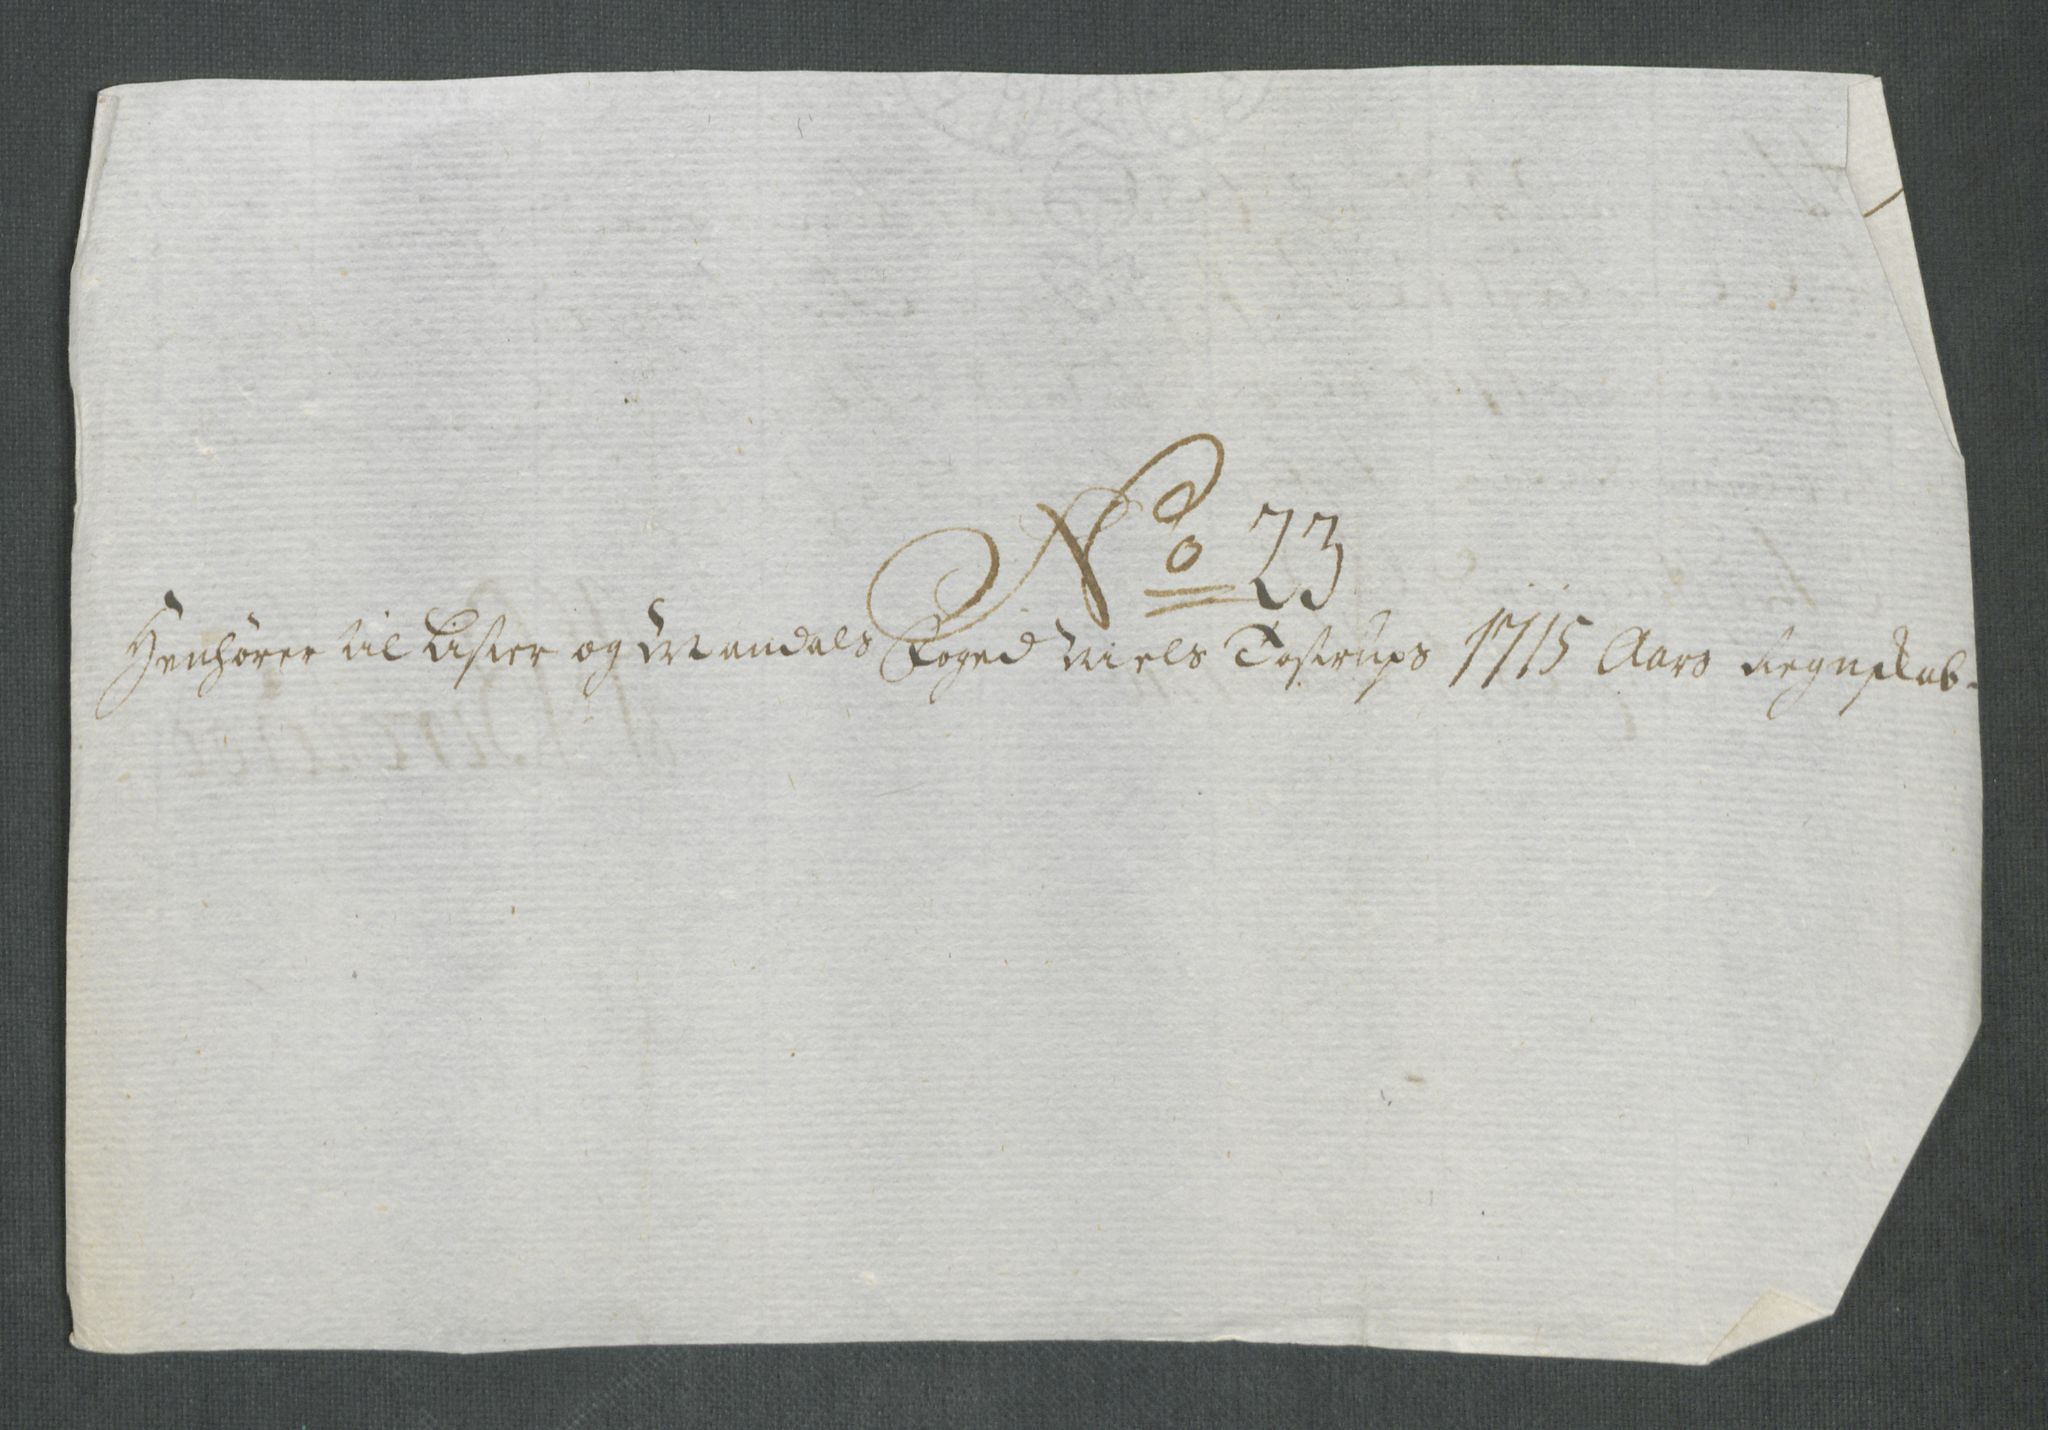 No 23
Henhører til Lister og Mandals Foged Niels Tostrups 1715 Aars Regnskab.